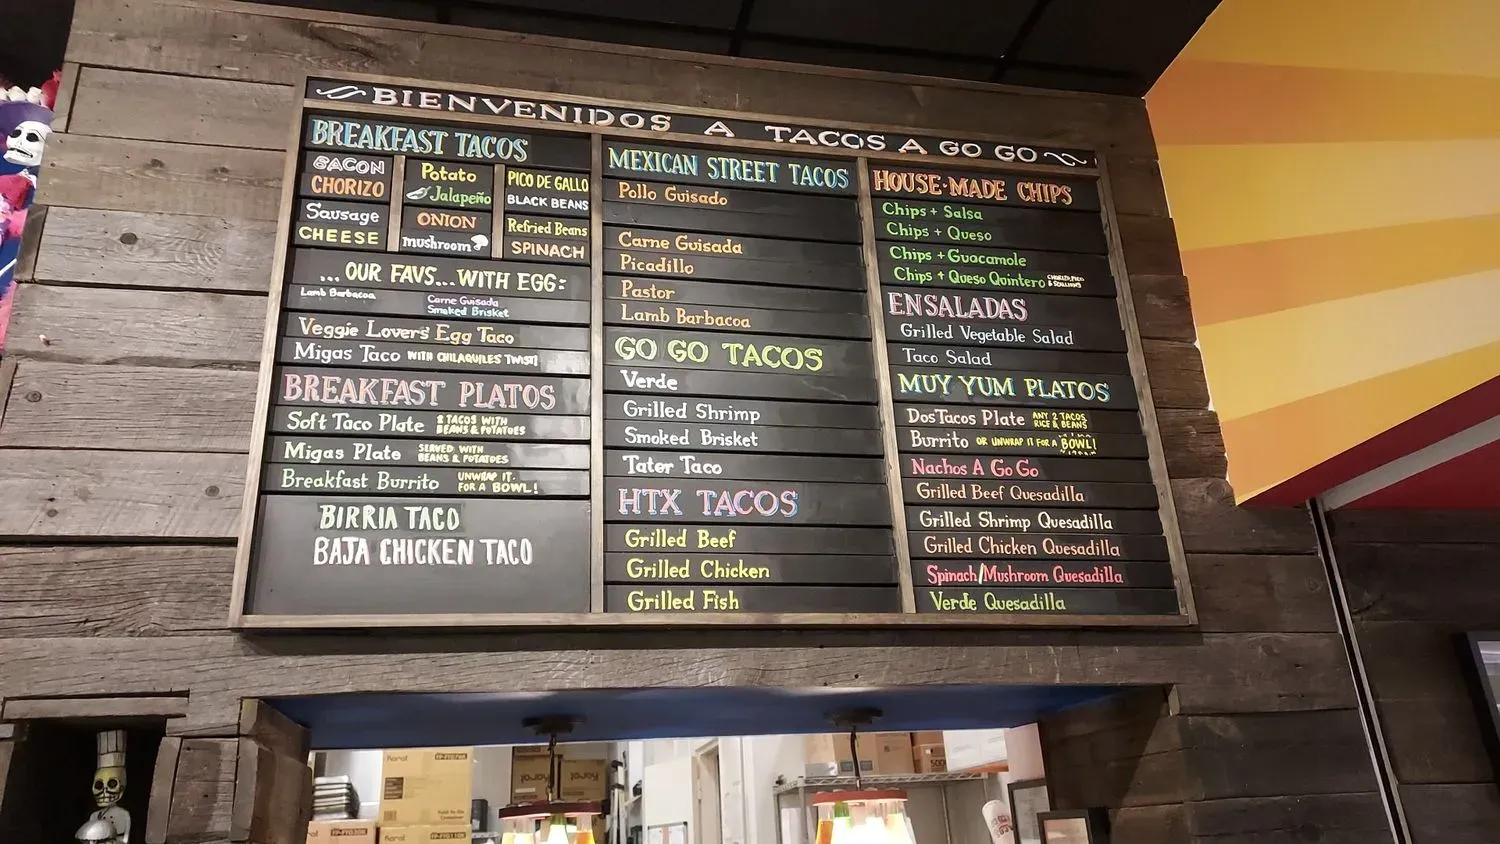 BIENVENIDOS A TACOS A GO GO
BREAKFAST TACOS
BACON
CHORIZO
Sausage
CHEESE
Potato
Jalapeño
ONION
mushroom
PICO DE GALLO
BLACK BEANS
Refried Beans
SPINACH
...OUR FAVS...WITH EGG:
Lamb Barbacoa
Carne Guisada
Smoked Brisket
Veggie Lover's Egg Taco
Migas Taco WITH CHILAQUILES TWIST!
BREAKFAST PLATOS
Soft Taco Plate 2 TACOS WITH
BEANS & POTATOES
Migas Plate SERVED WITH
BEANS & POTATOES
Breakfast Burrito UNWRAP IT.
FOR A BOWL!
BIRRIA TACO
BAJA CHICKEN TACO
MEXICAN STREET TACOS
Pollo Guisado
Carne Guisada
Picadillo
Pastor
Lamb Barbacoa
GO GO TACOS
Verde
Grilled Shrimp
Smoked Brisket
Tater Taco
HTX TACOS
Grilled Beef
Grilled Chicken
Grilled Fish
HOUSE-MADE CHIPS
Chips + Salsa
Chips + Queso
Chips + Guacamole
Chips + Queso Quintero CHORIZO, PICO
& SCALLIONS
ENSALADAS
Grilled Vegetable Salad
Taco Salad
MUY YUM PLATOS
Dos Tacos Plate ANY 2 TACOS
RICE & BEANS
Burrito OR UNWRAP IT FOR A BOWL!
Nachos A Go Go
Grilled Beef Quesadilla
Grilled Shrimp Quesadilla
Grilled Chicken Quesadilla
Spinach/Mushroom Quesadilla
Verde Quesadilla